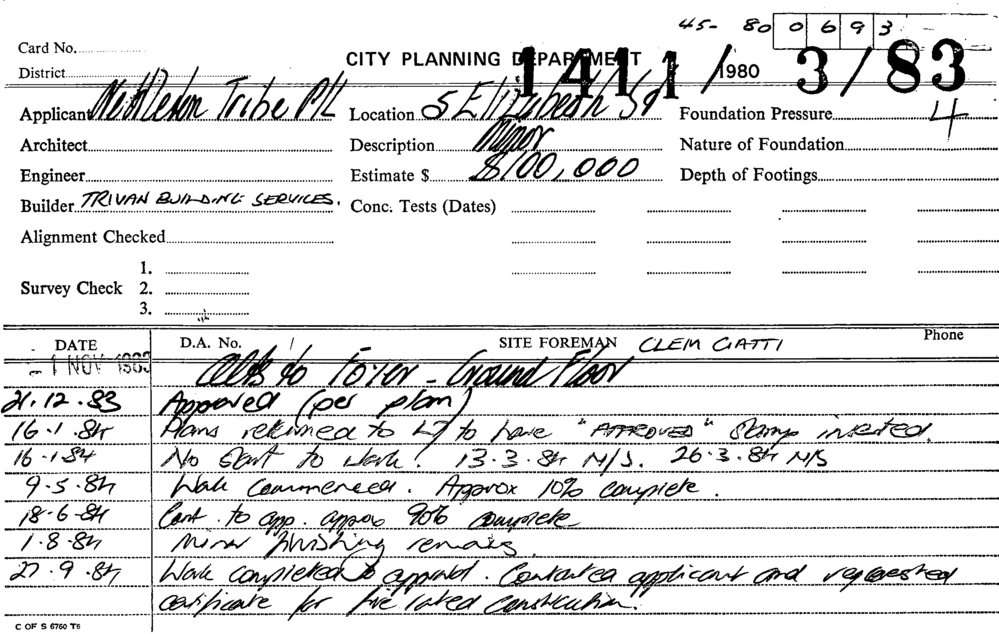 45- 80 0693
Card No.
CITY PLANNING DEPARTMENT 1411/1980 3/83
District
Applicant Nettleton Tribe P/L Location 5 Elizabeth St Foundation Pressure 4
Architect Description Minor Nature of Foundation
Engineer Estimate $ $100,000 Depth of Footings
Builder TRIVAN BUILDING SERVICES. Conc. Tests (Dates)
Alignment Checked
1.
Survey Check 2.
3.
DATE D.A. No. SITE FOREMAN CLEM CIATTI Phone
- 1 NOV 1983 Alts to Foyer - Ground Floor
21.12.83 Approved (per plan)
16.1.84 Plans returned to to have "APPROVED" stamp inserted.
16.1.84 No start to work. 13.3.84 N/S. 26.3.84 N/S
9.5.84 Work commenced. Approx 10% complete.
18.6.84 Cont. to app. approx 90% complete
1.8.84 Minor finishing remains.
27.9.84 Work completed to approval. Contacted applicant and requested
certificate for fire rated construction.
C OF S 6760 T6